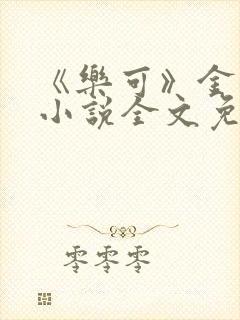 《樂可》全
小說全文免
零零零